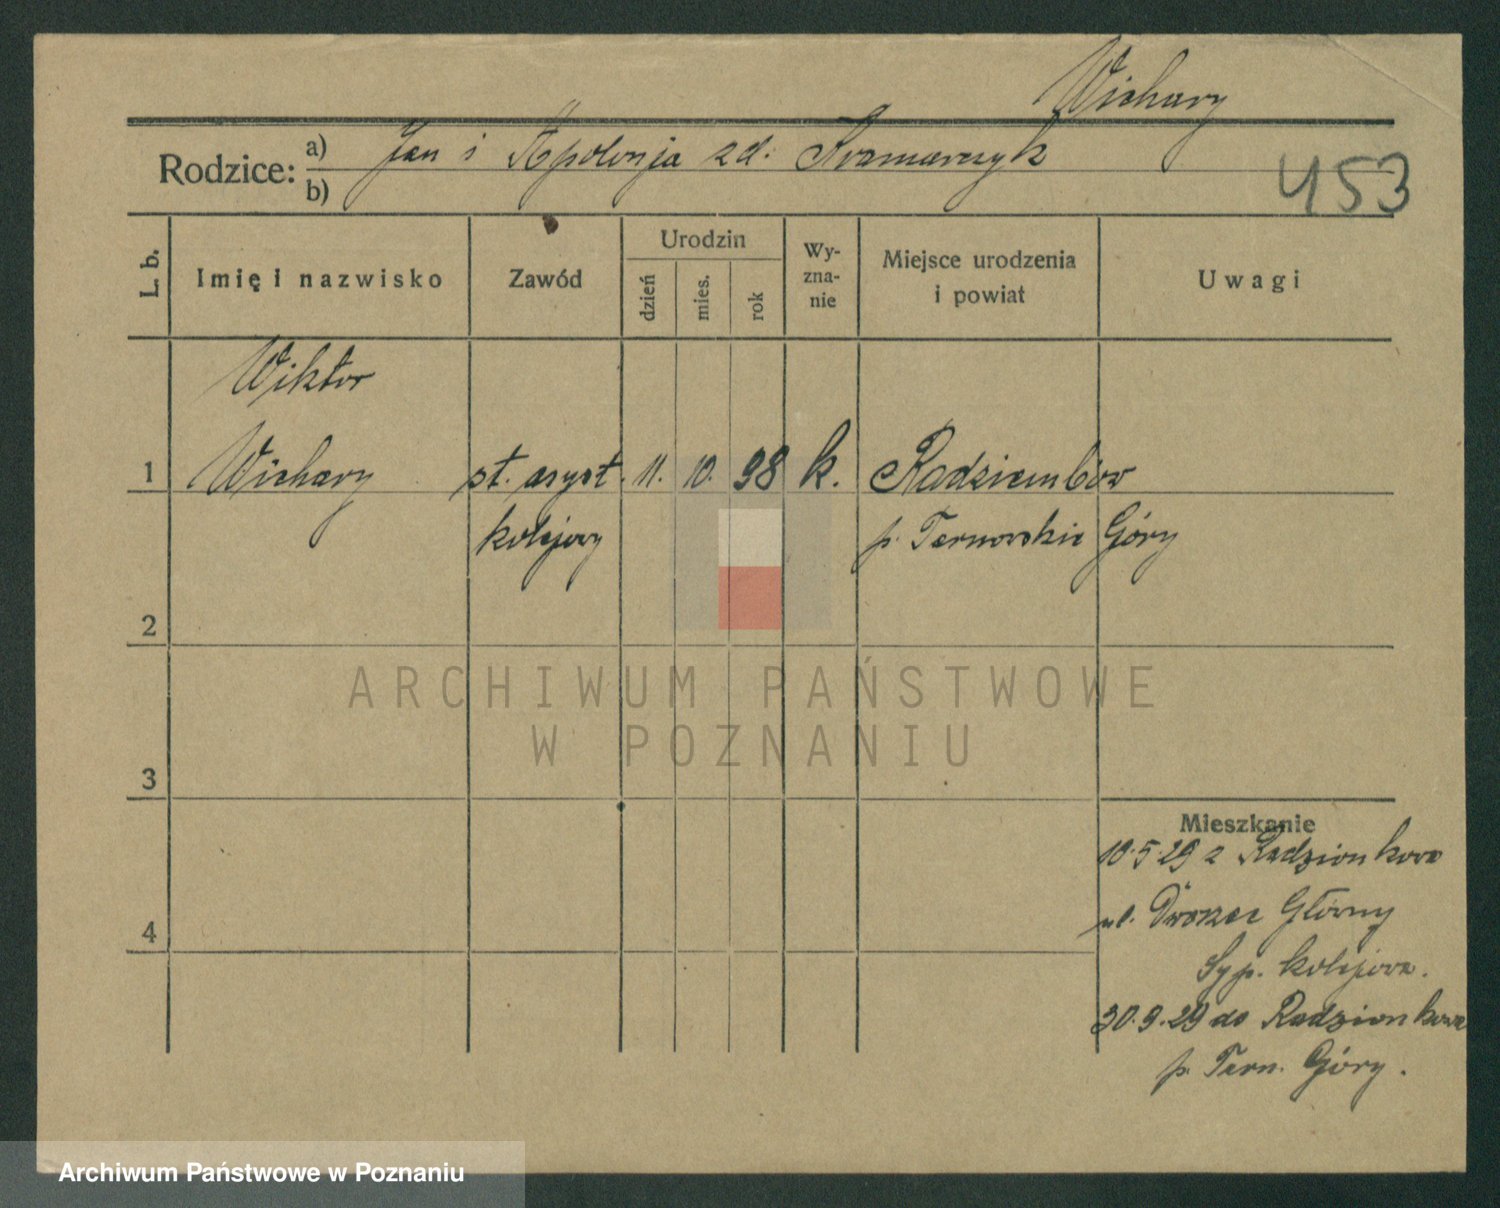 Wichary
Rodzice: a) Jan i Apolonja zd. Kramarczyk
b)
453
L. b.
Imię i nazwisko
Zawód
Urodzin
dzień
mies.
rok
Wy-
zna-
nie
Miejsce urodzenia
i powiat
Uwagi
Wiktor
1 Wichary st. asyst. 11. 10. 98 k. Radziembów
kolejowy p. Tarnowskie Góry
2
ARCHIWUM PAŃSTWOWE
W POZNANIU
3
Mieszkanie
10.5.29 z Radzionkowa
ul. Dworzec Główny
4
Syp. kolejowa.
30.9.29 do Radzionkowa
p. Tarn. Góry.
Archiwum Państwowe w Poznaniu